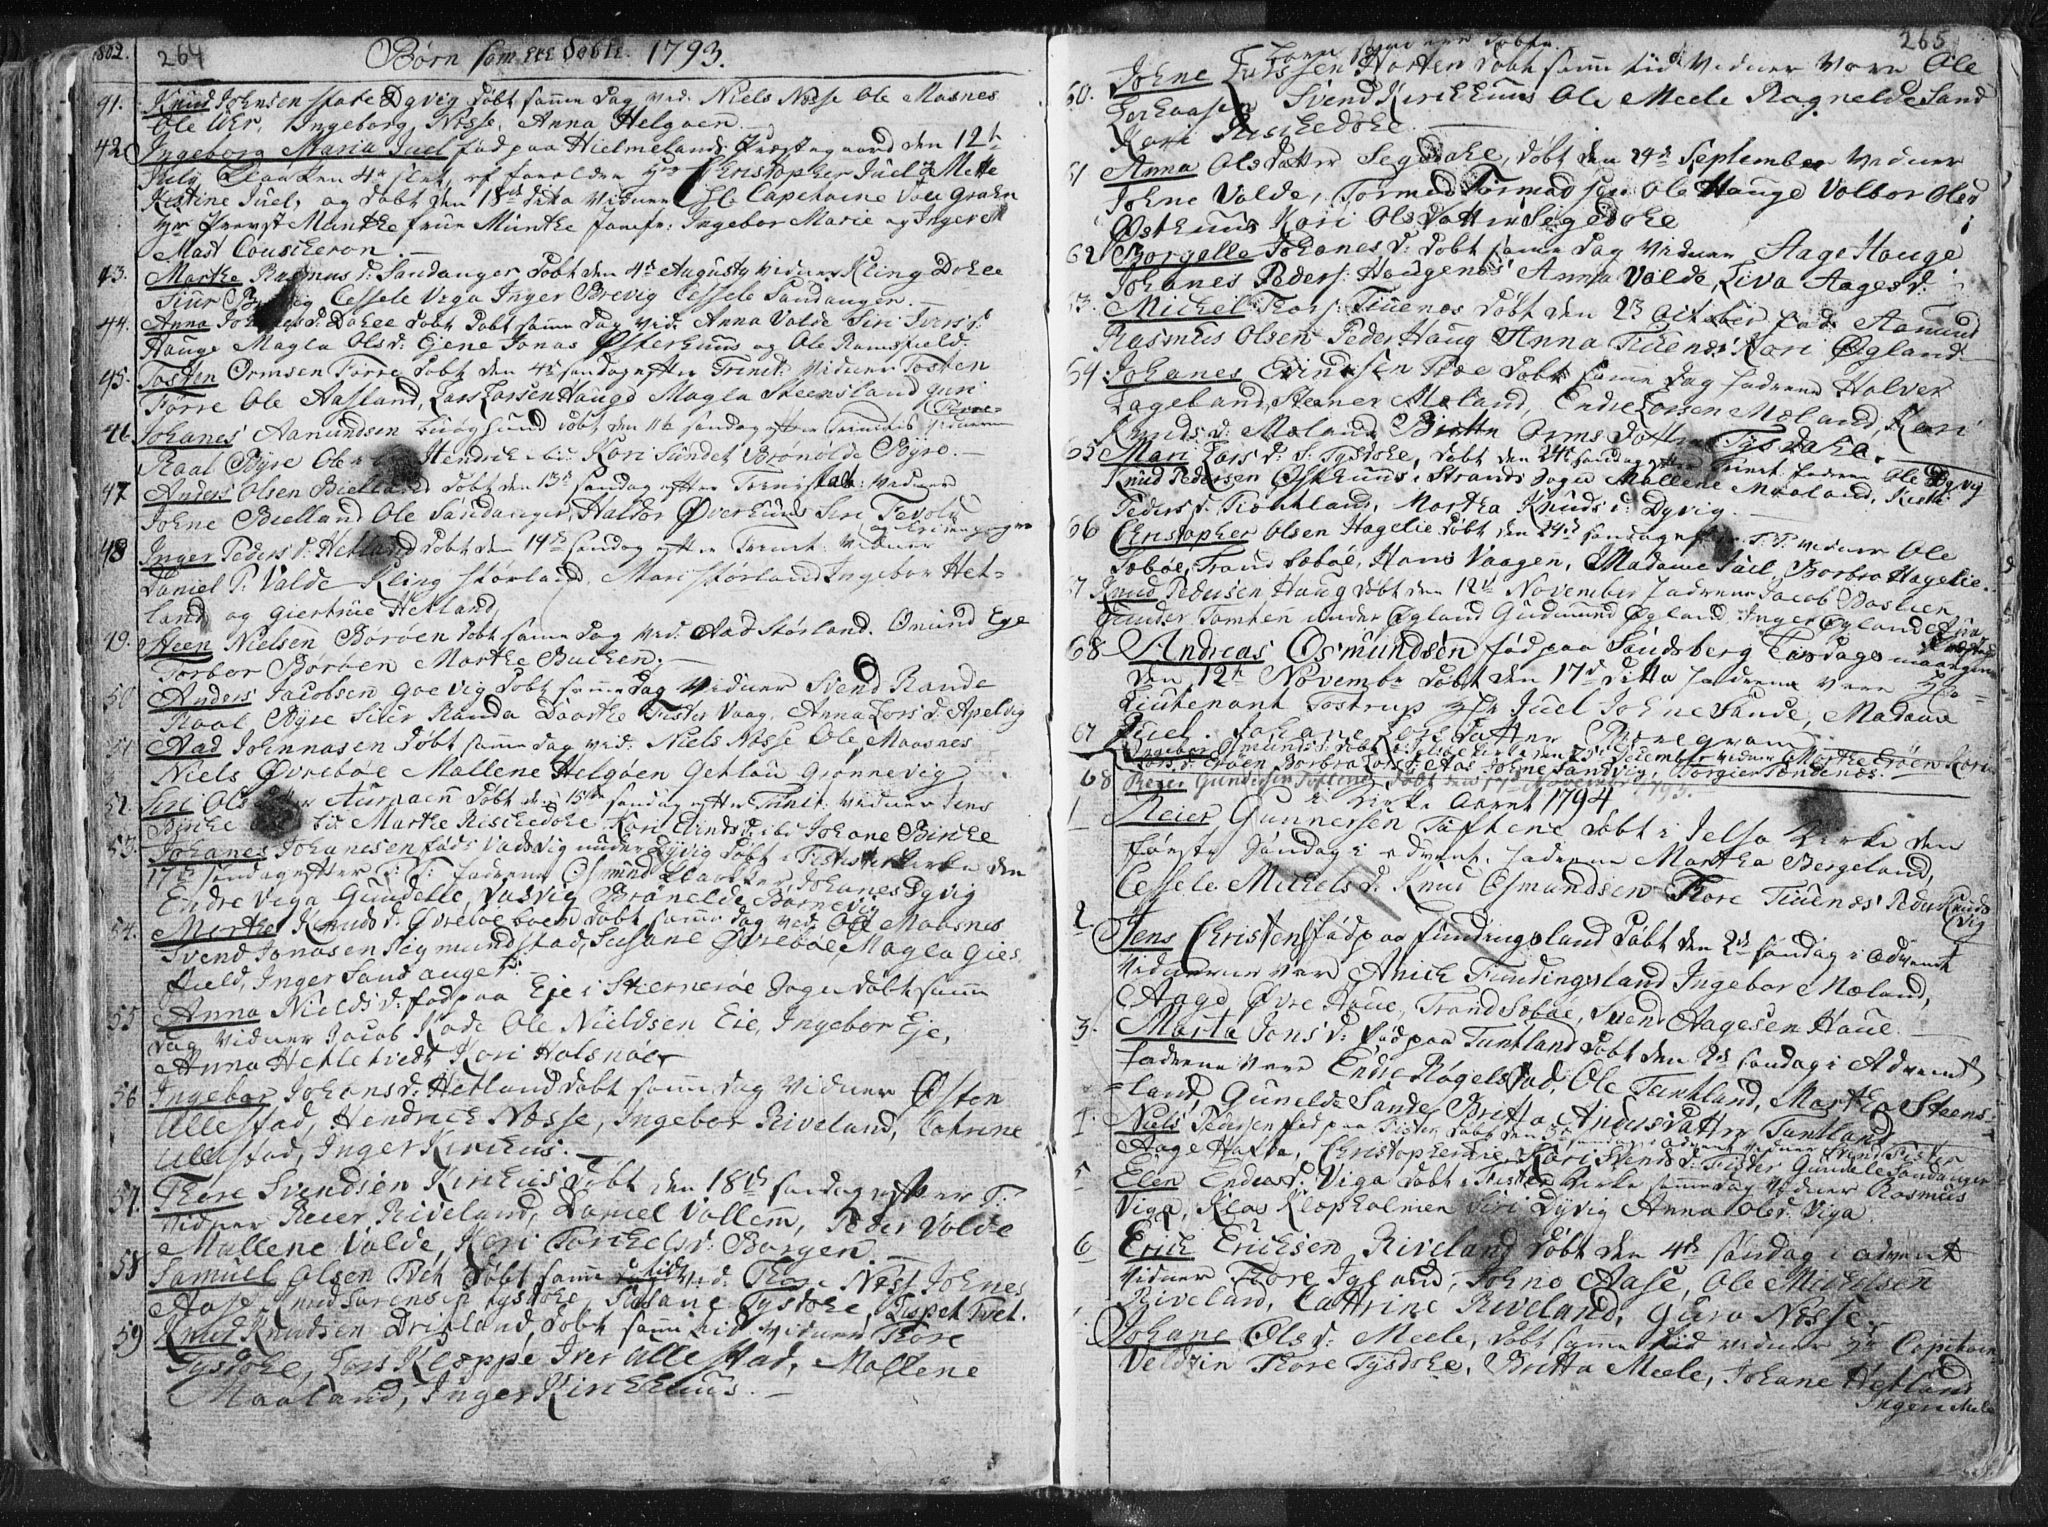 802. 264 Børn som ere døbte. 1793.
41. Knud Johnsen store Dyvig døbt samme dag ved. Niels Nesse Ole Mosnes
Ole Ingeborg Nesse, Anna Helgøen
42. Ingeborg Maria Juel fød paa Hielmelands Præstegaard den 12te
July Klokken 4 Slet, af forælden Hr Christopher Juel og Mette
Kistine Juel, og døbt den 18de dito vidner Capitaine Von Graben
Hr Provst Muntke frue Muntke Jomfr: Ingebor Marie og Inger
Mast Couscheron.
43. Martke Rasmus d: Sandanger døbt den 4de Augusty vidner Kling Dokee
Siur Cessele Vega Inger Brevig Cessele Sandanger.
44. Anna Dokee døbt samme dag vid: Anna Valde Siri Ivers d:
Hauge Magla Ols d: Eiene Jonas Østerhuus og Ole Ramsfield.
45. Tosten Ormsen Førre døbt den 4de sondag efter Trinit: vidner Tosten
Førre Ole Aasland, Lars Larsen Haugo Magla Steensland guri
Førre
46. Johanes Aamundsen døbt den 11te søndag efter Trinitis vidnerne
Raal Byre Ole Hendrich Kori Sundet Bronilde Byre.
47. Anders Olsen Bielland døbt den 13de søndag efter Trinitat: vidner
Johne Bielland Ole Sandanger, Haldor Øverhuus Siri Tevold
48. Inger Peders d: Hetland døbt den 14de søndag efter Trinit: vidner
Daniel P: Valde Kling Størland, Mari Størland Ingebor Het-
land, og Giertrue Hetland,
49. Steen Nielsen Borøen døbt samme dag ved: Aad Størland. Omund Eye
Torbor Børøen Martke Bucken.
50. Anders Jacobsen Goevig døbt samme dag Vidner Svend Rande
Raal Byre Siur Randa Daarthe Fister Vaag, Anna Lars d: Apelvig
51. Aad Johnnasen døbt samme dag ved: Niels Nesse Ole Maasnes
Niels Øvrebøe Mallene Helgøen Gektau Grønnevig
52. Siri Ols døbt den 15de søndag efter Trinit: vidner Jens
Bircke Martke Riskedoke, Kari Ibi Johane Bircke
53. Johanes Johanesen føds Vadsvig under Dyvig døbt i Fister kirke den
17de søndag efter T: T: fadrene Osmund Johanes Dyvig
Endre Vega Gundelle, Vadsvig Brønelde Barnevig
54. Martke Knuds d: Øvrebøe døbt samme dag ved Ole Maasnes
Svend Jonasen Sigmundstad, Susane Øvrebøe, Magla Gies
field, Inger Sandanger.
55. Anna Nields d: fød paa Eje i Stiernerøe Sogn døbt samme
dag vidner Jacob Kade Ole Nieldsen Eie, Ingebor Eje,
Anna Hetletvedt Kari Halsnøe
56. Ingebor Johans d: Hetland døbt samme dag Vidner Østen
Ullestad, Hendrich Nesse, Ingebor Riveland, Catrine
Ullestad, Inger Kirkuus.
57. Thore Svendsen Kirkuis døbt den 18de søndag efter T:
Vidner Reier Riveland, Daniel Vallem, Peder Valde
Mallene Valde, Kari Torkels d: Borgen.
58. Samuel Olsen Tvet døbt samme tid ved: Thore Nest Johnes
Aase Knud Sørensen Tysdoke, Susane Tysdoke, Lispet Tvet.
59. Knud Knudsen Drigland, døbt samme tid Vidner Thore
Tysdoke, Lars Kleppe Iver Ullestad, Mallene
Maaland, Inger Kirckhuus.
265
Børn som ere døbte.
60. Johne Larssen Horten døbt samme tid Vidner Vare Ole
Svend Kirckhuus Ole Meele Ragnelde Sand
Kari Riskedoke
61 Anna Ols datter Segedoke, døbt den 24de September Vidner
Johne Valde, Tormod Tormodsen Ole Hauge Valbor Olsd
Østhuus Kari Ols datter Segedoke
62 Borgelle Johanes d: døbt samme dag Vidner Aage Hauge
Johanes Peders: Haugenes Anna Valde, Liva Aages d:
63. Michel Thors: Tiuenes døbt den 23 october fad: Aamund
Rasmus Olsen Peder Haug Anna Tiuenes Kari Øgland
64 Johanes Eindesen Thoe døbt samme dag fadrene Halver
Lageland, Steener Mæland, Endre Larsen Mæland, Kari
Knuds d: Mæland Birthe Orms datter Tysdoke.
65 Mari Lars d: Tysdoke, døbt den 24de søndag efter Trinit: fadrene Ole Dyvig
Knud Pedersen Østhuus i Strands Sogn Mallene Maaland, Kirsti
Peders d: Tiontland, Martha Knuds d: Dyvig.
66 Christopher Olsen Hagelie døbt den 24de søndag efter T: T: vidner Ole
Søbøe, Trond Søbøe, Hans Vaagen, Madame Juel, Barbro Hagelie.
67 Knud Pedersen Haug døbt den 12te November fadrene Jacob Bostien
Gunder Tomten under Øgland Gudmund Øgland, Inger Øgland
68 Andreas Osmundsen fød paa Sandsberg Tirsdags
den 12te Novembr døbt den 17de ditto fadrene vare Hr
Lieutenant Tostrup Hr Juel Johne Sande, Madame
Juel. Johane Lars datter Børegrav
67 Ingebor Osmunds d: døbt i Jelsøe kirke den 25de December vidner Martke Erøen
Lars d: Erøen Borbra Lars d: Aas Johne Sandvig, Torgier Sandenæs.
68 Reier Gundersen Tøftene døbt den 1793.
kirke Aaret 1794
1 Reier Gunnersen Tøftene døbt i Jelsø kirke den
første søndag i advent, fadrene Martha Bergeland,
Cessele Michels d: Knud Osmundsen Thore Tiuenes Peder Knuds
vig
2 Jens Christens: fød paa Fundingsland døbt den 2de søndag i advent
Vidnerne vare Anich Fundingsland Ingebor Mæland,
Aage Øvre Haue, Trond Søbøe, Svend Aagesen Haue
3. Marta Jons d: Fød paa Tuntland døbt den 2de søndag i Advent
fadrene vare Endre Røgelstad, Ole Tuntland, Martha Steens-
land, Gunelde Sande, Britta Anders datter Tuntland
4. Niels Pedersen fød paa Fister døbt den 3de søndag i advent vidner Svend Fister
Aage Hafta, Christopher Kari Svends d: Fister Gundele Sandanger
5 Elen Endres d: Viga døbt i Fister kirke samme dag vidner Rasmus
Viga, Klas Kleepholmen Siri Dyvig Anna Olsd. Viga.
6 Erich Ericksen Riveland døbt den 4de søndag i advent
vidner Thore Igland, Johno Aase, Ole Michelsen
Riveland, Cathrine Riveland, Guro Nesse.
Johane Ols d: Meele, døbt samme tid vidner Hr Capitain
Veldzin Thore Tysdoke, Britta Meele, Johane Hetland
Inger Mele